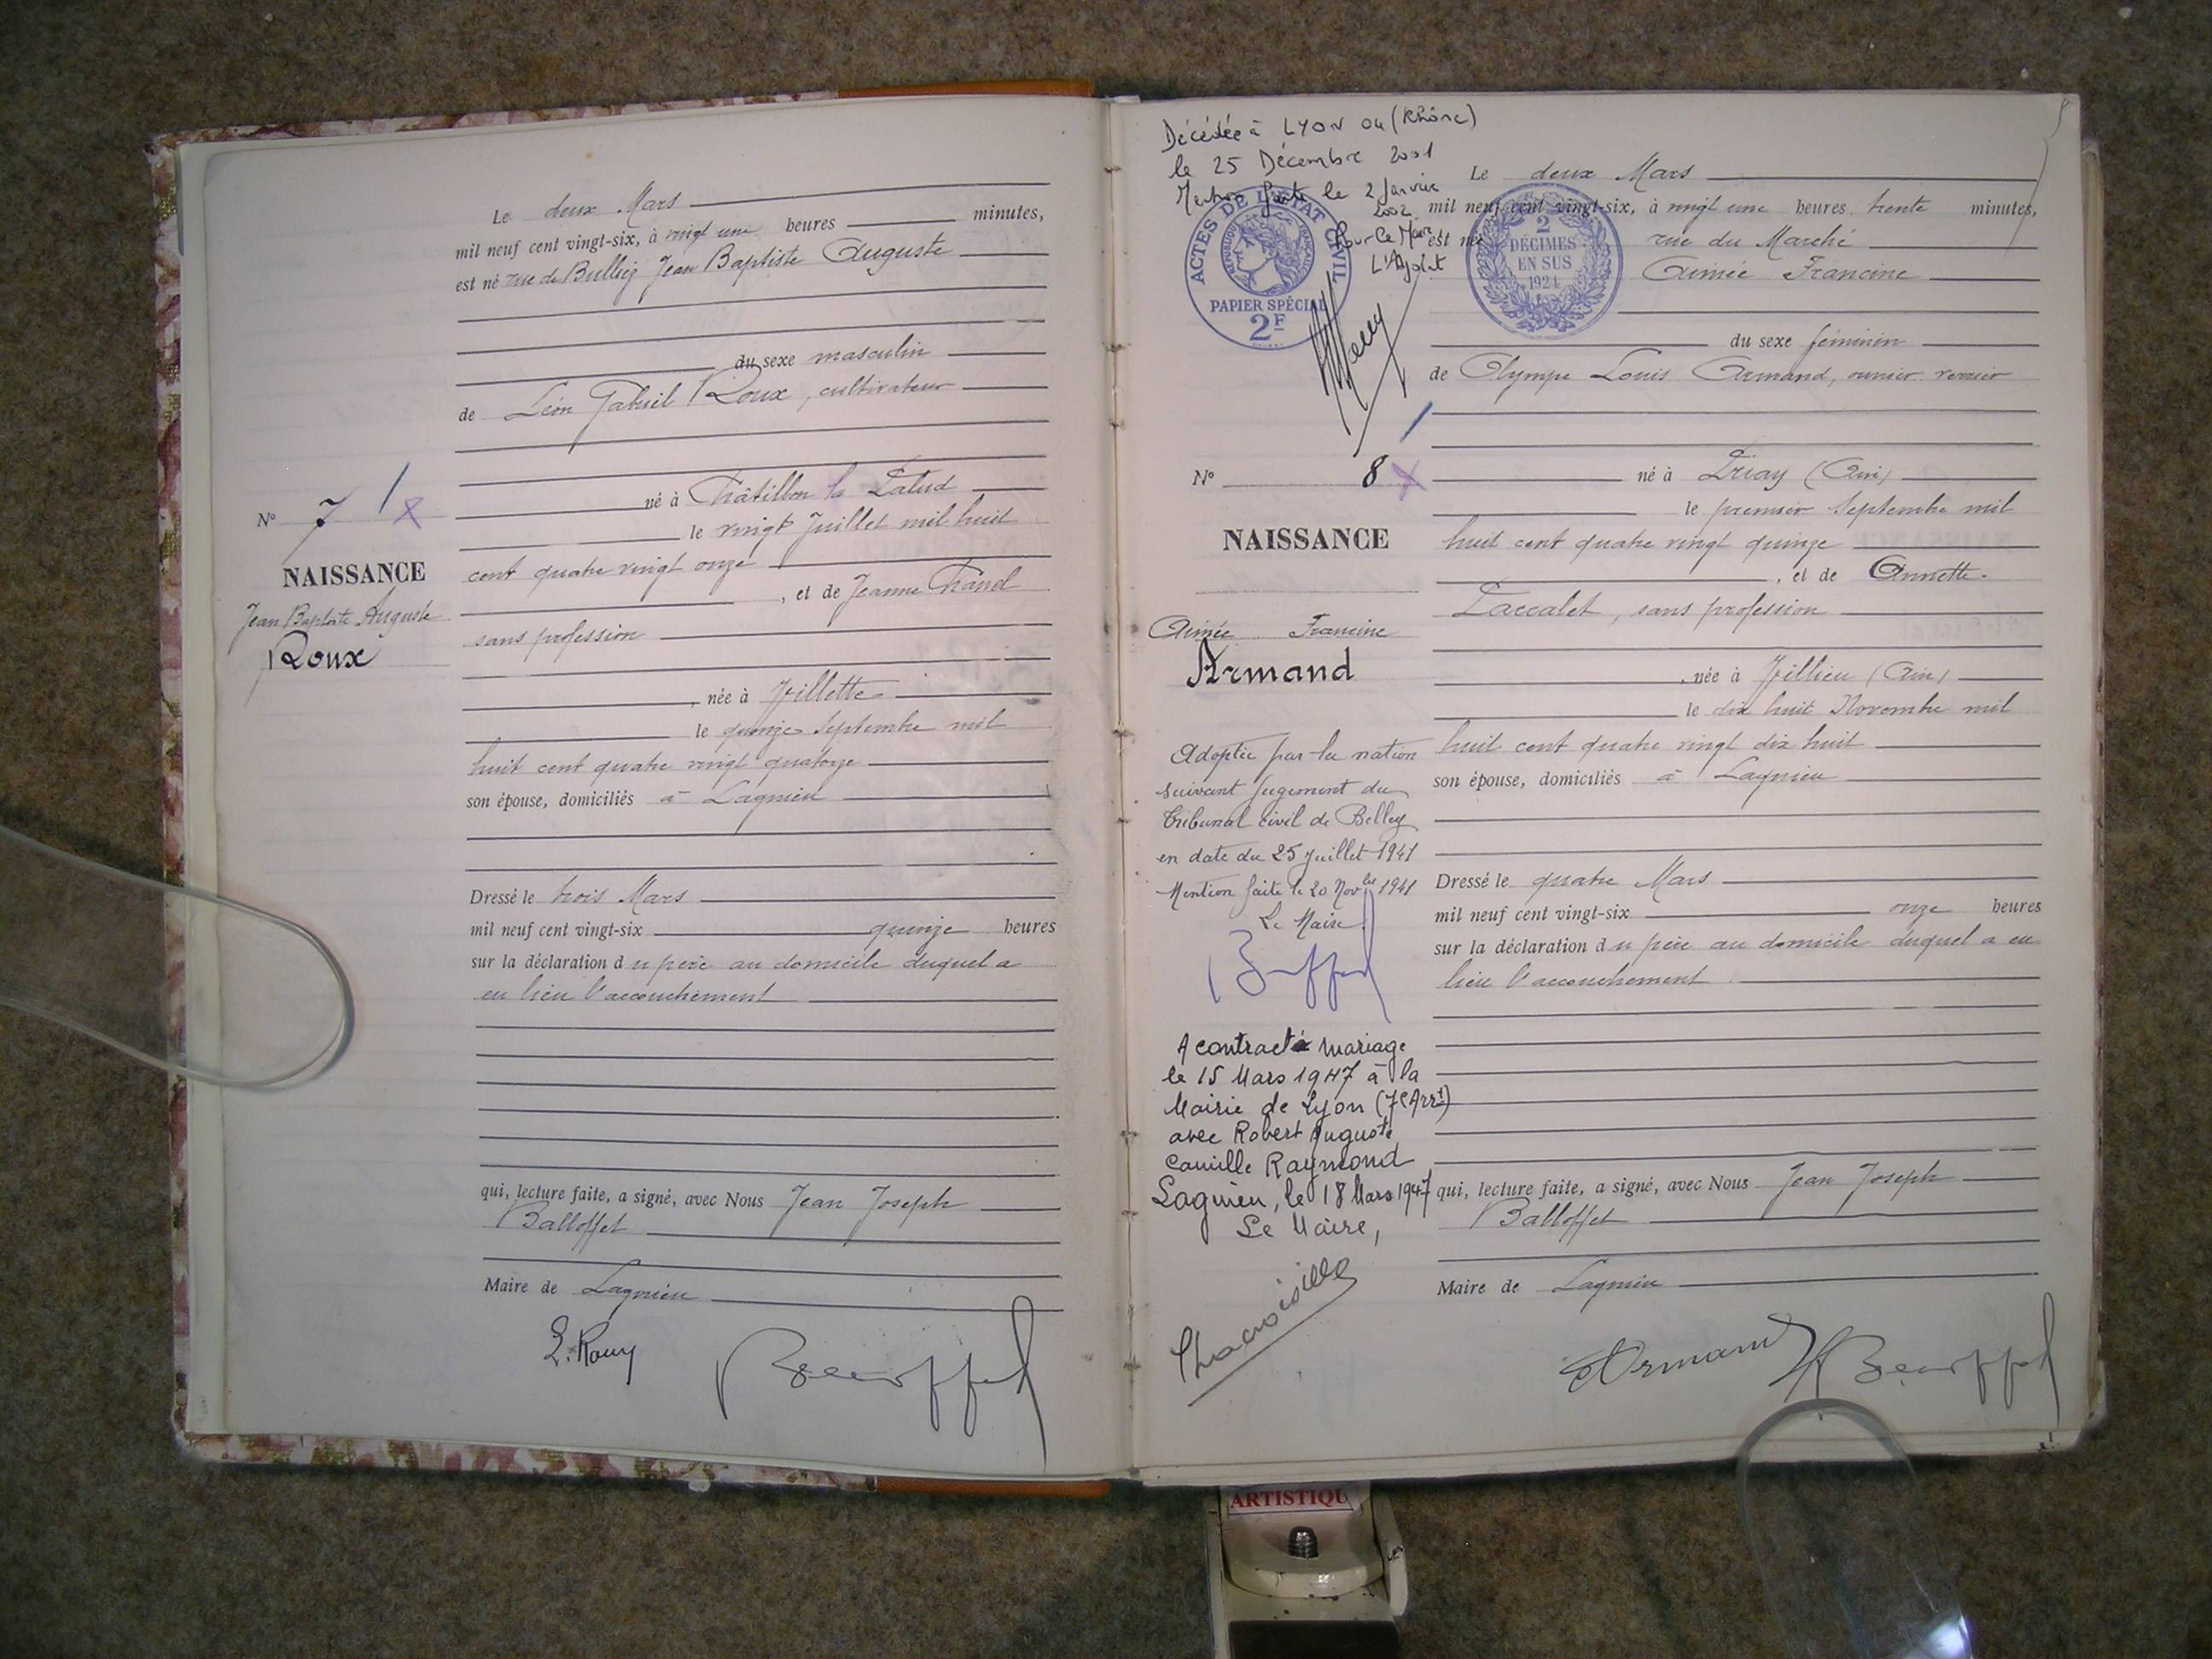 Le deux Mars
mil neuf cent vingt-six, à vingt une heures minutes,
est né rue de Bulliez Jean Baptiste Auguste
du sexe masculin
de Léon Gabriel Roux, cultivateur
né à Châtillon la Palud
le vingt Juillet mil huit
cent quatre vingt onze
, et de Jeanne Chanel
sans profession
, née à Villette
le quinze Septembre mil
huit cent quatre vingt quatorze
son épouse, domiciliés à Lagnieu
Dressé le trois Mars
mil neuf cent vingt-six quinze heures
sur la déclaration du père au domicile duquel a
eu lieu l'accouchement
qui, lecture faite, a signé, avec Nous Jean Joseph
Balloffet
Maire de Lagnieu
L. Roux
N° 7
NAISSANCE
Jean Baptiste Auguste
Roux
Décédée à LYON 04 (Rhône)
le 25 Décembre 2001
Mention faite le 2 Janvier
2002
Pour Le Maire,
L'Adjoint
ACTES DE L'ÉTAT CIVIL
PAPIER SPÉCIAL
2F
2
DÉCIMES
EN SUS
1924
Le deux Mars
mil neuf cent vingt-six, à vingt une heures trente minutes,
est née rue du Marché
Aimée Francine
du sexe féminin
de Olympe Louis Armand, ouvrier verrier
né à Priay (Ain)
le premier Septembre mil
huit cent quatre vingt quinze
, et de Annette
Paccalet, sans profession
, née à Villieu (Ain)
le dix huit Novembre mil
huit cent quatre vingt dix huit
son épouse, domiciliés à Lagnieu
Dressé le quatre Mars
mil neuf cent vingt-six onze heures
sur la déclaration du père au domicile duquel a eu
lieu l'accouchement
qui, lecture faite, a signé, avec Nous Jean Joseph
Balloffet
Maire de Lagnieu
Armand
N° 8
NAISSANCE
Aimée Francine
Armand
Adoptée par la nation
suivant jugement du
Tribunal civil de Belley
en date du 25 Juillet 1941
Mention faite le 20 Novbre 1941
Le Maire
A contracté mariage
le 15 Mars 1947 à la
Mairie de Lyon (7e Arrt)
avec Robert Auguste
Camille Raymond
Lagnieu, le 18 Mars 1947
Le Maire,
ARTISTIQU